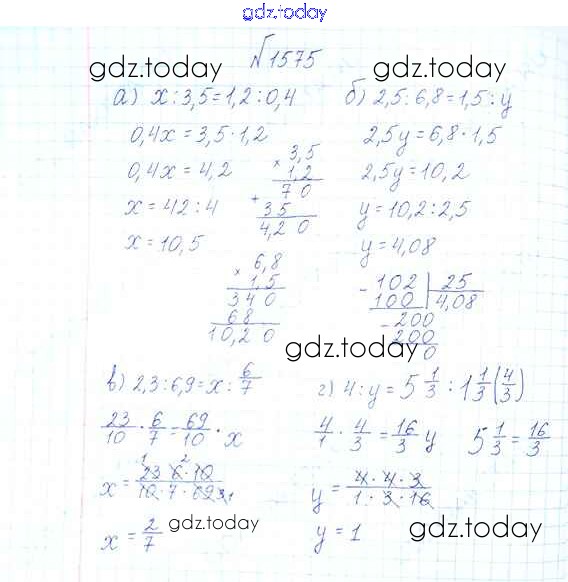 gdz.today
№1575
gdz.today gdz.today
а) x : 3,5 = 1,2 : 0,4
0,4x = 3,5 · 1,2
0,4x = 4,2
x = 42 : 4
x = 10,5
3,5
× 1,2
7 0
+ 3 5
4,2 0
б) 2,5 : 6,8 = 1,5 : y
2,5y = 6,8 · 1,5
2,5y = 10,2
y = 10,2 : 2,5
y = 4,08
6,8
× 1,5
3 4 0
6 8
10,2 0
- 102 | 25
100 | 4,08
- 200
200
0
gdz.today
в) 2,3 : 6,9 = x : 6/7
23/10 · 6/7 = 69/10 · x
x = 23 · 6 · 10 / 10 · 7 · 69
1 2
3 1
x = 2/7
gdz.today
г) 4 : y = 5 1/3 : 1 1/3 (4/3)
4/1 · 4/3 = 16/3 y 5 1/3 = 16/3
y = 4 · 4 · 3 / 1 · 3 · 16
y = 1
gdz.today